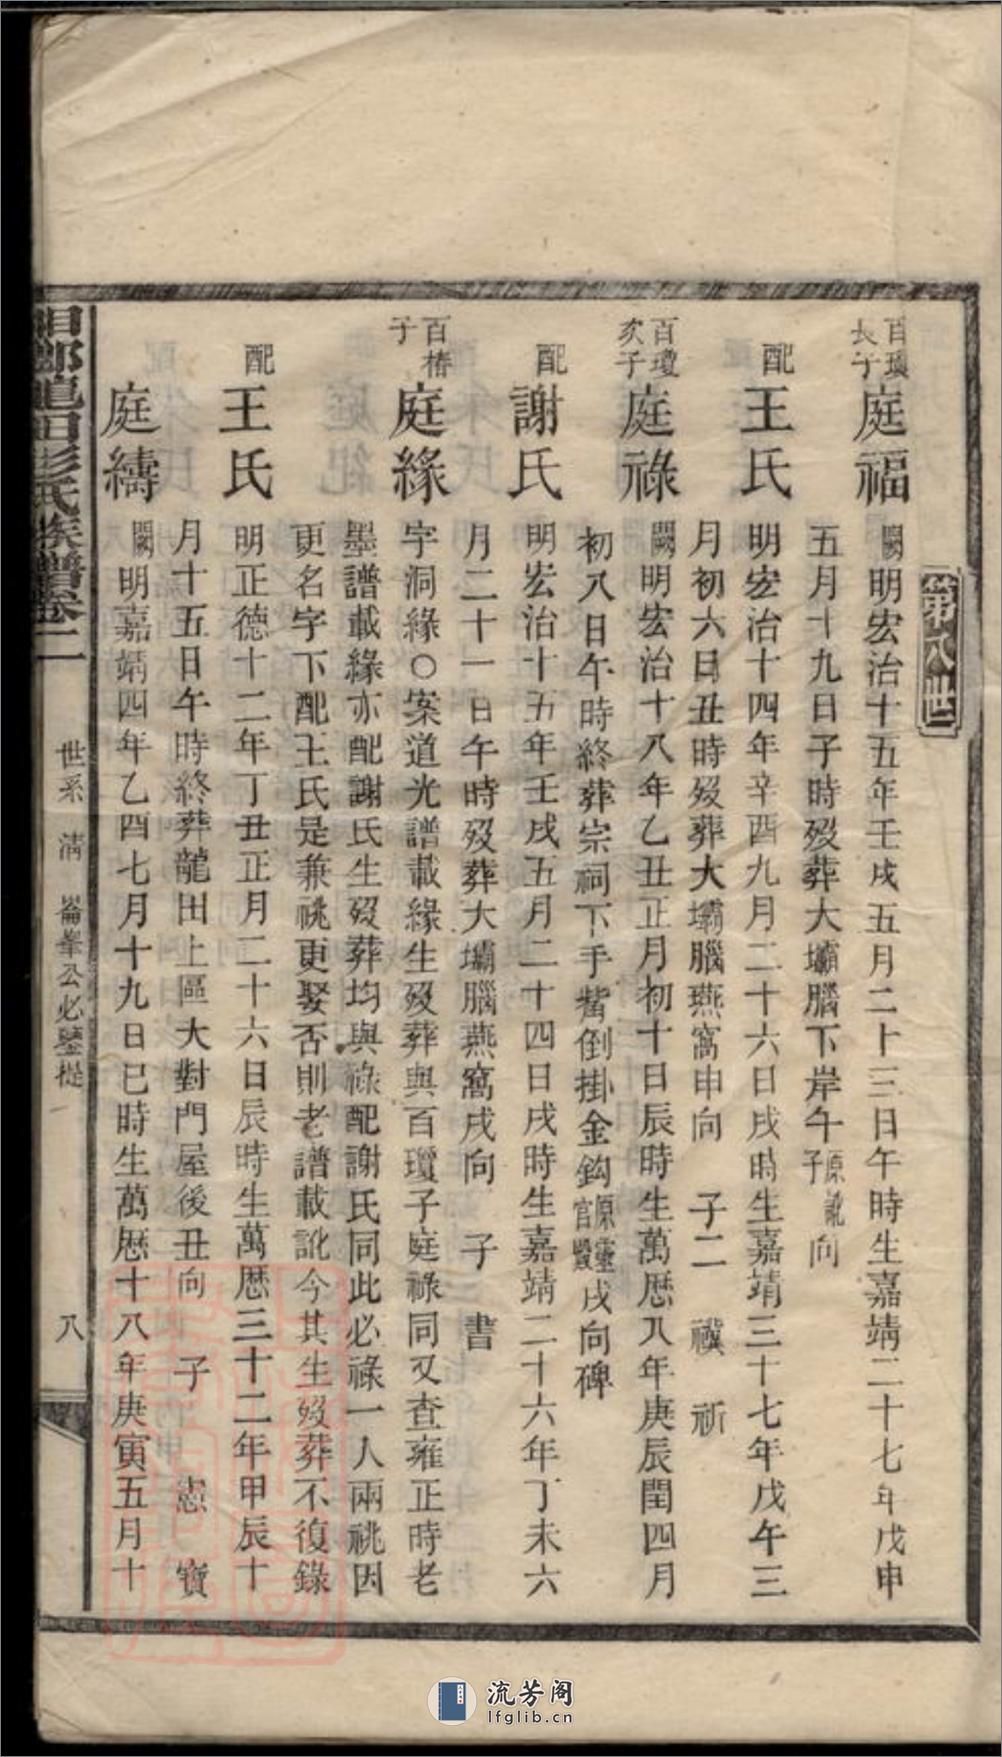 第八世
百瓊長子
庭福
闕明宏治十五年壬戌五月二十三日午時生嘉靖二十七年戊申
五月十九日子時歿葬大壩腦下岸午原訛子向
配王氏
明宏治十四年辛酉九月二十六日戌時生嘉靖三十七年戊午三
月初六日丑時歿葬大壩腦燕窩申向 子二 禩 祈
百瓊次子
庭祿
闕明宏治十八年乙丑正月初十日辰時生萬厯八年庚辰閏四月
初八日午時終葬宗祠下手嘴倒掛金鈎原靈官殿戌向碑
配謝氏
明宏治十五年壬戌五月二十四日戌時生嘉靖二十六年丁未六
月二十一日午時歿葬大壩腦燕窩戌向 子 書
百椿子
庭緣
字洞緣○案道光譜載緣生歿葬與百瓊子庭祿同又查雍正時老
墨譜載緣亦配謝氏生歿葬均與祿配謝氏同此必祿一人兩祧因
更名字下配王氏是兼祧更娶否則老譜載訛今其生歿葬不復錄
配王氏
明正德十二年丁丑正月二十六日辰時生萬厯三十二年甲辰十
月十五日午時終葬龍田上區大對門屋後丑向 子 憲 寶
庭繡
闕明嘉靖四年乙酉七月十九日巳時生萬厯十八年庚寅五月十
龍田彭氏族譜卷二
世系 淸 崙峯公必鑒提
八
流芳阁
lfglib.cn